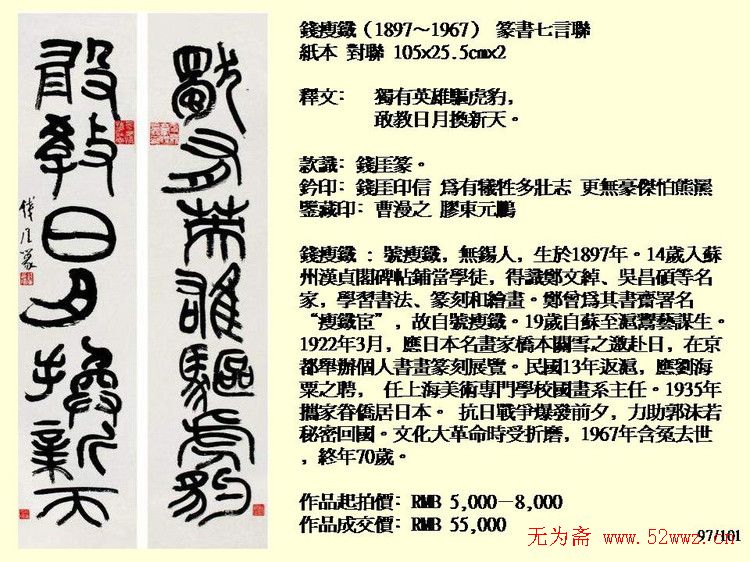 獨有英雄驅虎豹
敢教日月換新天
錢厓篆
錢瘦鐵（1897～1967） 篆書七言聯
紙本 對聯 105x25.5cmx2
釋文： 獨有英雄驅虎豹，
敢教日月換新天。
款識：錢厓篆。
鈐印：錢厓印信 爲有犧牲多壯志 更無豪傑怕熊羆
鑒藏印：曹漫之 膠東元鵬
錢瘦鐵 ：號瘦鐵，無錫人，生於1897年。14歲入蘇
州漢貞閣碑帖鋪當學徒，得識鄭文焯、吳昌碩等名
家，學習書法、篆刻和繪畫。鄭曾爲其書齋署名
“瘦鐵宧”，故自號瘦鐵。19歲自蘇至滬鬻藝謀生。
1922年3月，應日本名畫家橋本關雪之邀赴日，在京
都舉辦個人書畫篆刻展覽。民國13年返滬，應劉海
粟之聘， 任上海美術專門學校國畫系主任。1935年
攜家眷僑居日本。 抗日戰爭爆發前夕，力助郭沫若
秘密回國。文化大革命時受折磨，1967年含冤去世
，終年70歲。
作品起拍價：RMB 5,000－8,000
作品成交價：RMB 55,000
无为斋 www.52wwz.cn
97/101